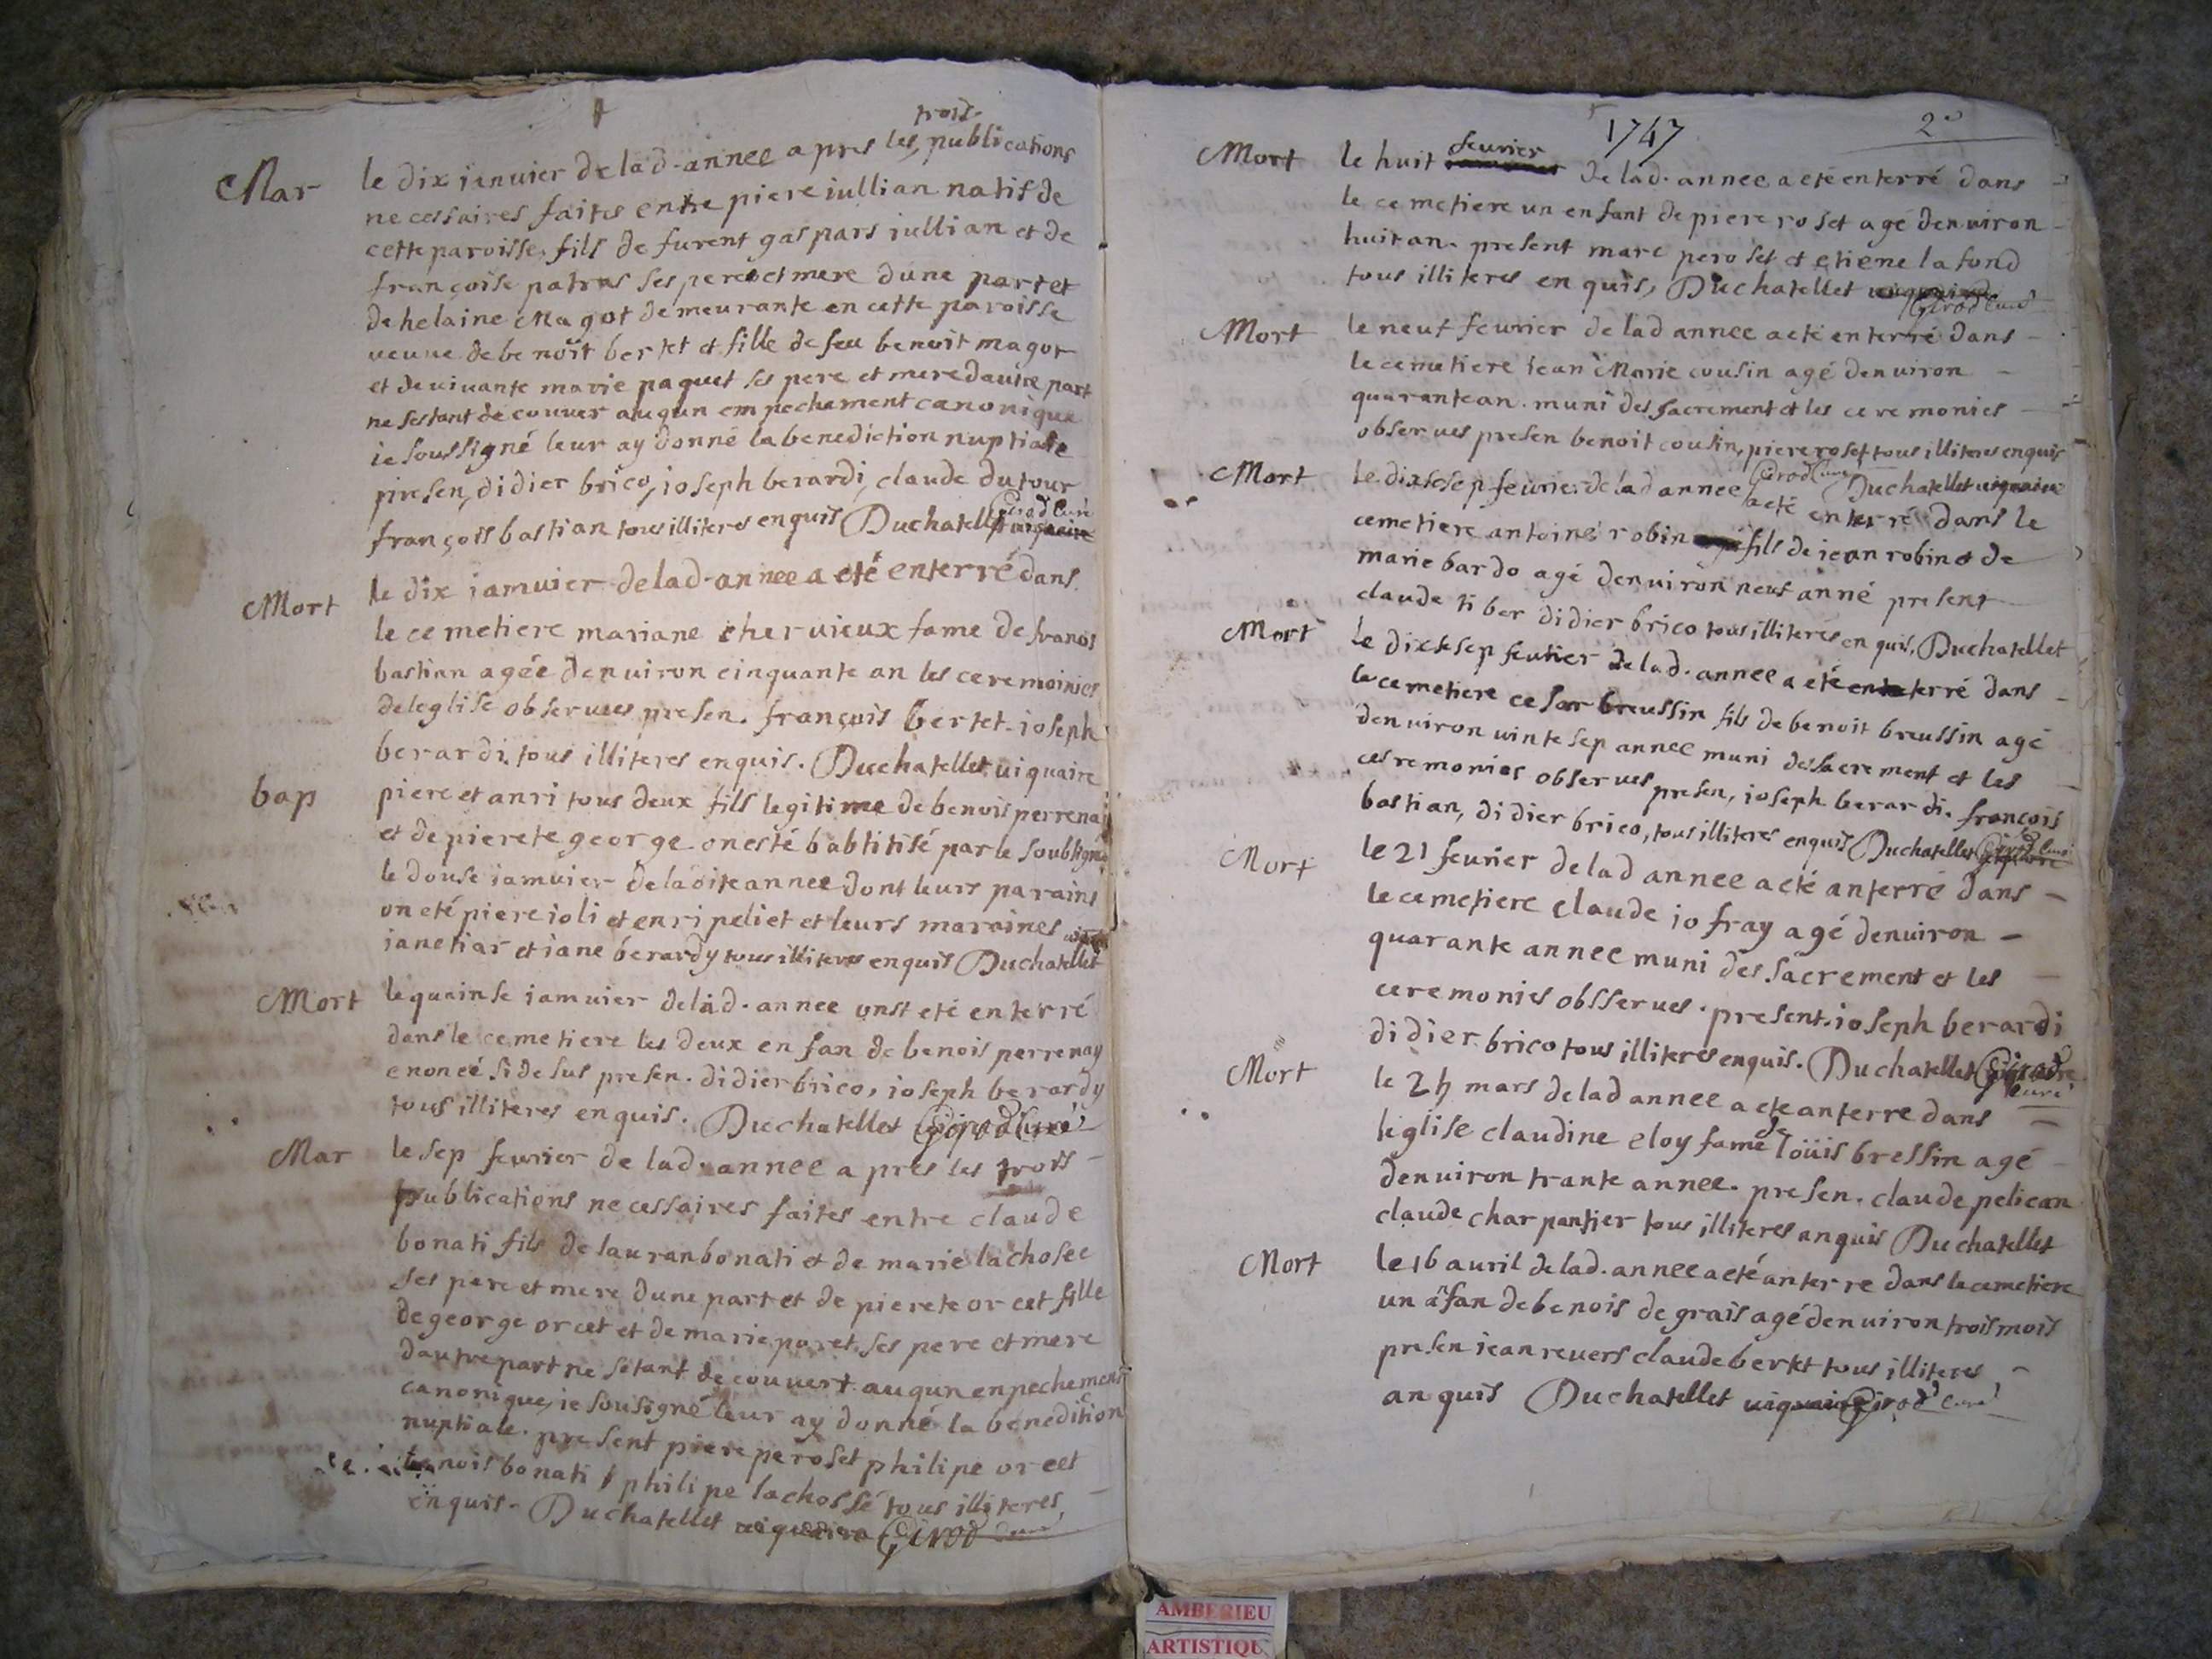 trois
Mar le dix ianvier de lad. annee apres les publications
necessaires faites entre piere iullian natif de
cette paroisse, fils de furent gaspars iullian et de
françoise patras ses pere et mere dune part et
de helaine Magot demeurante en cette paroisse
veuve de benoit bertet et fille de feu benoit magot
et de vivante marie paquet ses pere et mere dautre part
ne sestant decouver augun empechement canonique
ie soussigné leur ay donné la benediction nuptiale
presen, didier brico, ioseph berardi, claude dutour
françois bastian tous illiteres enquis Duchatellet Girod Curé
Mort le dix iamvier de lad. annee a eté enterré dans
le cemetiere mariane chervieux fame de franois
bastian agée denviron cinquante an les ceremoinies
deleglise observees presen. françois bertet. ioseph
berardi, tous illiteres enquis. Duchatellet viquaire
bap piere et anri tous deux fils legitime de benois perrenay
et de pierete george on esté babtitisé par le soubsigné
le douse iamvier de ladite annee dont leurs parains
on eté piere ioli et enri peliet et leurs maraines
iane tiar et iane berardy tous illiteres enquis Duchatellet
Mort le quainse iamvier de lad. annee onst eté enterré
dans le cemetiere les deux enfan de benois perrenay
enoncé sidesus presen. didier brico, ioseph berardy
tous illiteres enquis. Duchatellet Girod Curé
Mar le sep fevrier de lad. annee apres les trois
publications necessaires faites entre claude
bonati fils de lauran bonati et de marie lachosee
ses pere et mere dune part et de pierete orcet fille
de george orcet et de marie paret ses pere et mere
dautre part ne setant decouvert augun enpechement
canonique, ie sousigné leur ay donné la benedition
nuptiale. present piere peroset philipe orcet
benois bonati philipe lachossé tous illiteres
enquis. Duchatellet viquaire Girod Curé
1747 2e
Mort le huit fevrier de lad. annee a eté enterré dans
le cemetiere un enfant de piere roset agé denviron
huit an. present marc peroset et etiene lafond
tous illiteres enquis, Duchatellet Girod Curé
Mort le neuf fevrier de lad annee a eté enterré dans
le cemetiere iean Marie cousin agé denviron
quarante an. muni des sacrement et les ceremonies
observes presen benoit cousin, piere roset tous illiteres enquis
Girod Curé Duchatellet viquaire
Mort le dixsesep fevrier de lad annee a eté enterré dans le
cemetiere antoine robin fils de iean robin et de
marie bardo agé denviron neuf anné present
claude tiber didier brico tous illiteres enquis, Duchatellet
Mort le dixsesep fevrier de lad. annee a eté enterré dans
le cemetiere cesar breussin fils de benoit breussin agé
denviron vinte sep annee muni des sacrement et les
ceremonies observes presen, ioseph berardi. françois
bastian, didier brico, tous illiteres enquis Duchatellet Girod Curé
Mort le 21 fevrier de lad annee a eté anterré dans
le cemetiere claude iofray agé denviron
quarante annee muni des sacrement et les
ceremonies obsserves. present. ioseph berardi
didier brico tous illiteres enquis. Duchatellet Girod
Curé
Mort le 24 mars de lad annee a ete anterre dans
leglise claudine eloy fame de loüis bressin agé
denviron trante annee. presen. claude pelican
claude charpantier tous illiteres anquis Duchatellet
Mort le 16 avril de lad. annee a eté anterre dans le cemetiere
un afan de benois degrais agé denviron trois mois
presen iean revers claude bertet tous illiteres
anquis Duchatellet viquaire Girod Curé
AMBERIEU
ARTISTIQU